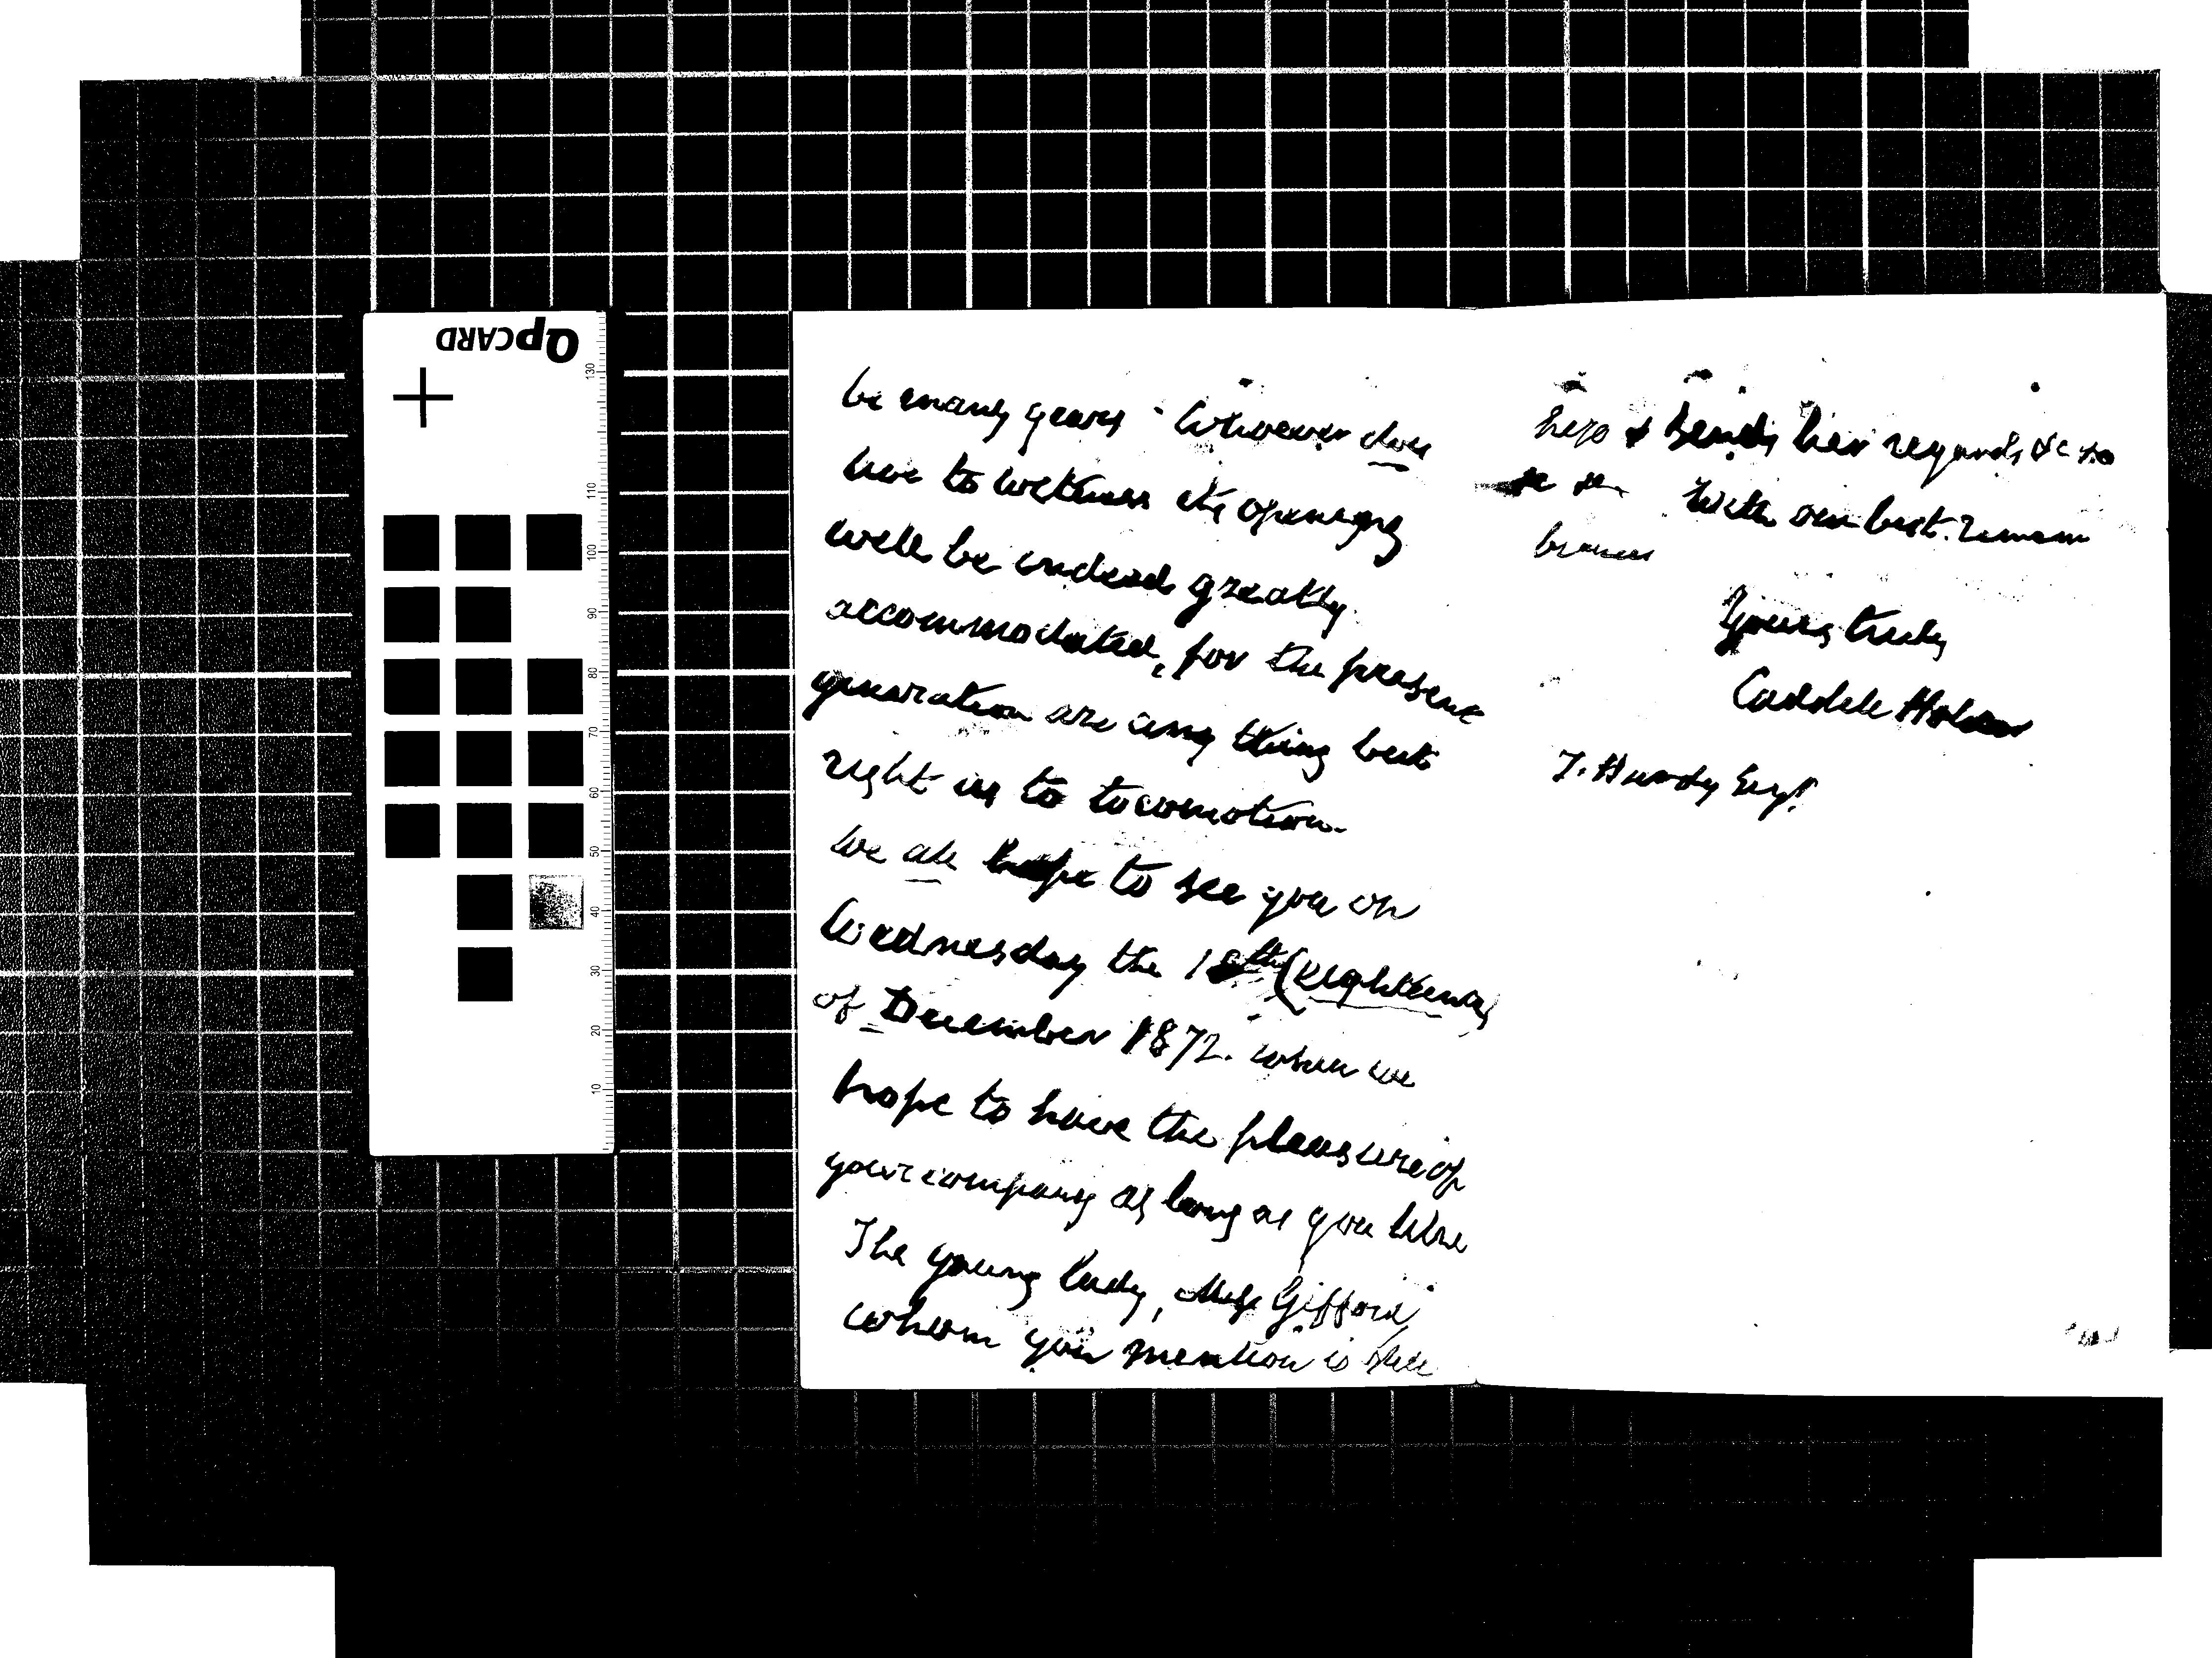 QPCARD
10 20 30 40 50 60 70 80 90 100 110 130
be many years. Whoever does
live to witness its opening
will be indeed greatly
accommodated, for the present
generation are any thing but
right as to locomotion.
We all hope to see you on
Wednesday the 18th (eighteenth)
of December 1872. when we
hope to have the pleasure of
your company as long as you like
The young lady, Miss Gifford,
whom you mention is still
here & sends her regards &c &c
&c &c With our best remem
brances
Yours truly
Caddell Holder
T. Hardy Esqr.